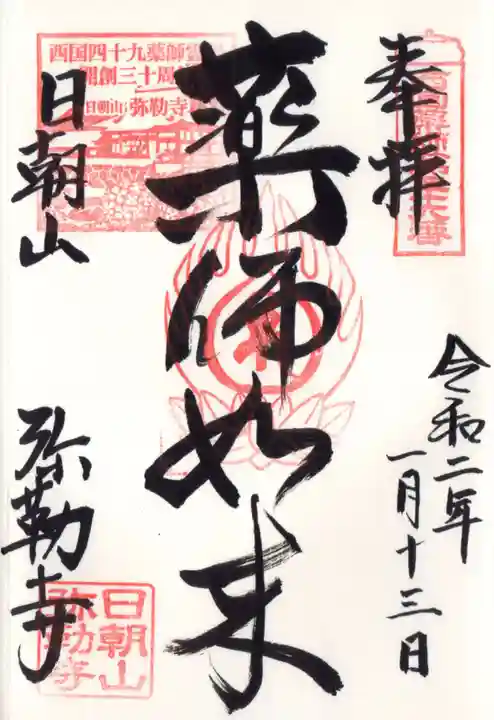 奉拝
令和二年
一月十三日
薬师如来
西国四十九薬師霊
開創三十周
日朝山 弥勒寺
日朝山
弥勒寺
日朝山
弥勒寺